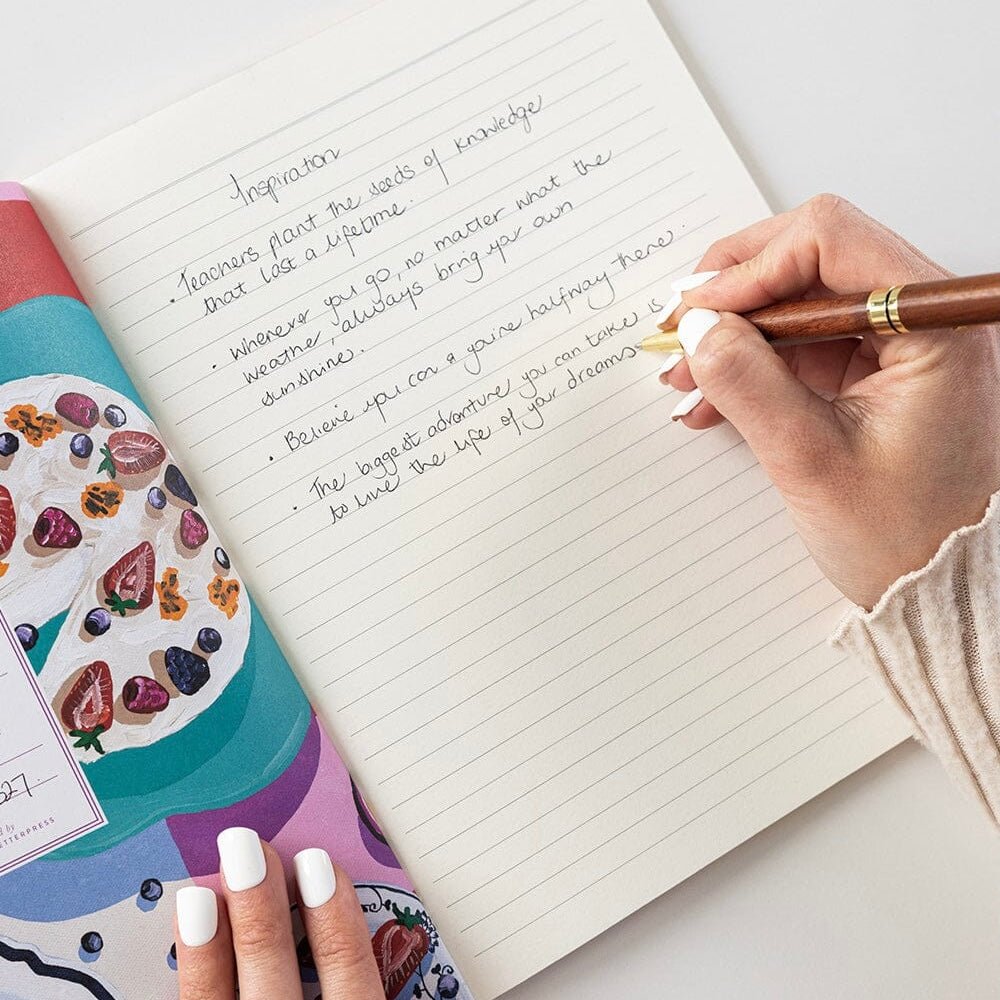 Inspiration
· Teachers plant the seeds of knowledge
that last a lifetime.
· Wherever you go, no matter what the
weather, always bring your own
sunshine.
· Believe you can & you're halfway there.
· The biggest adventure you can take is
to live the life of your dreams
27.
by
ETTERPRESS